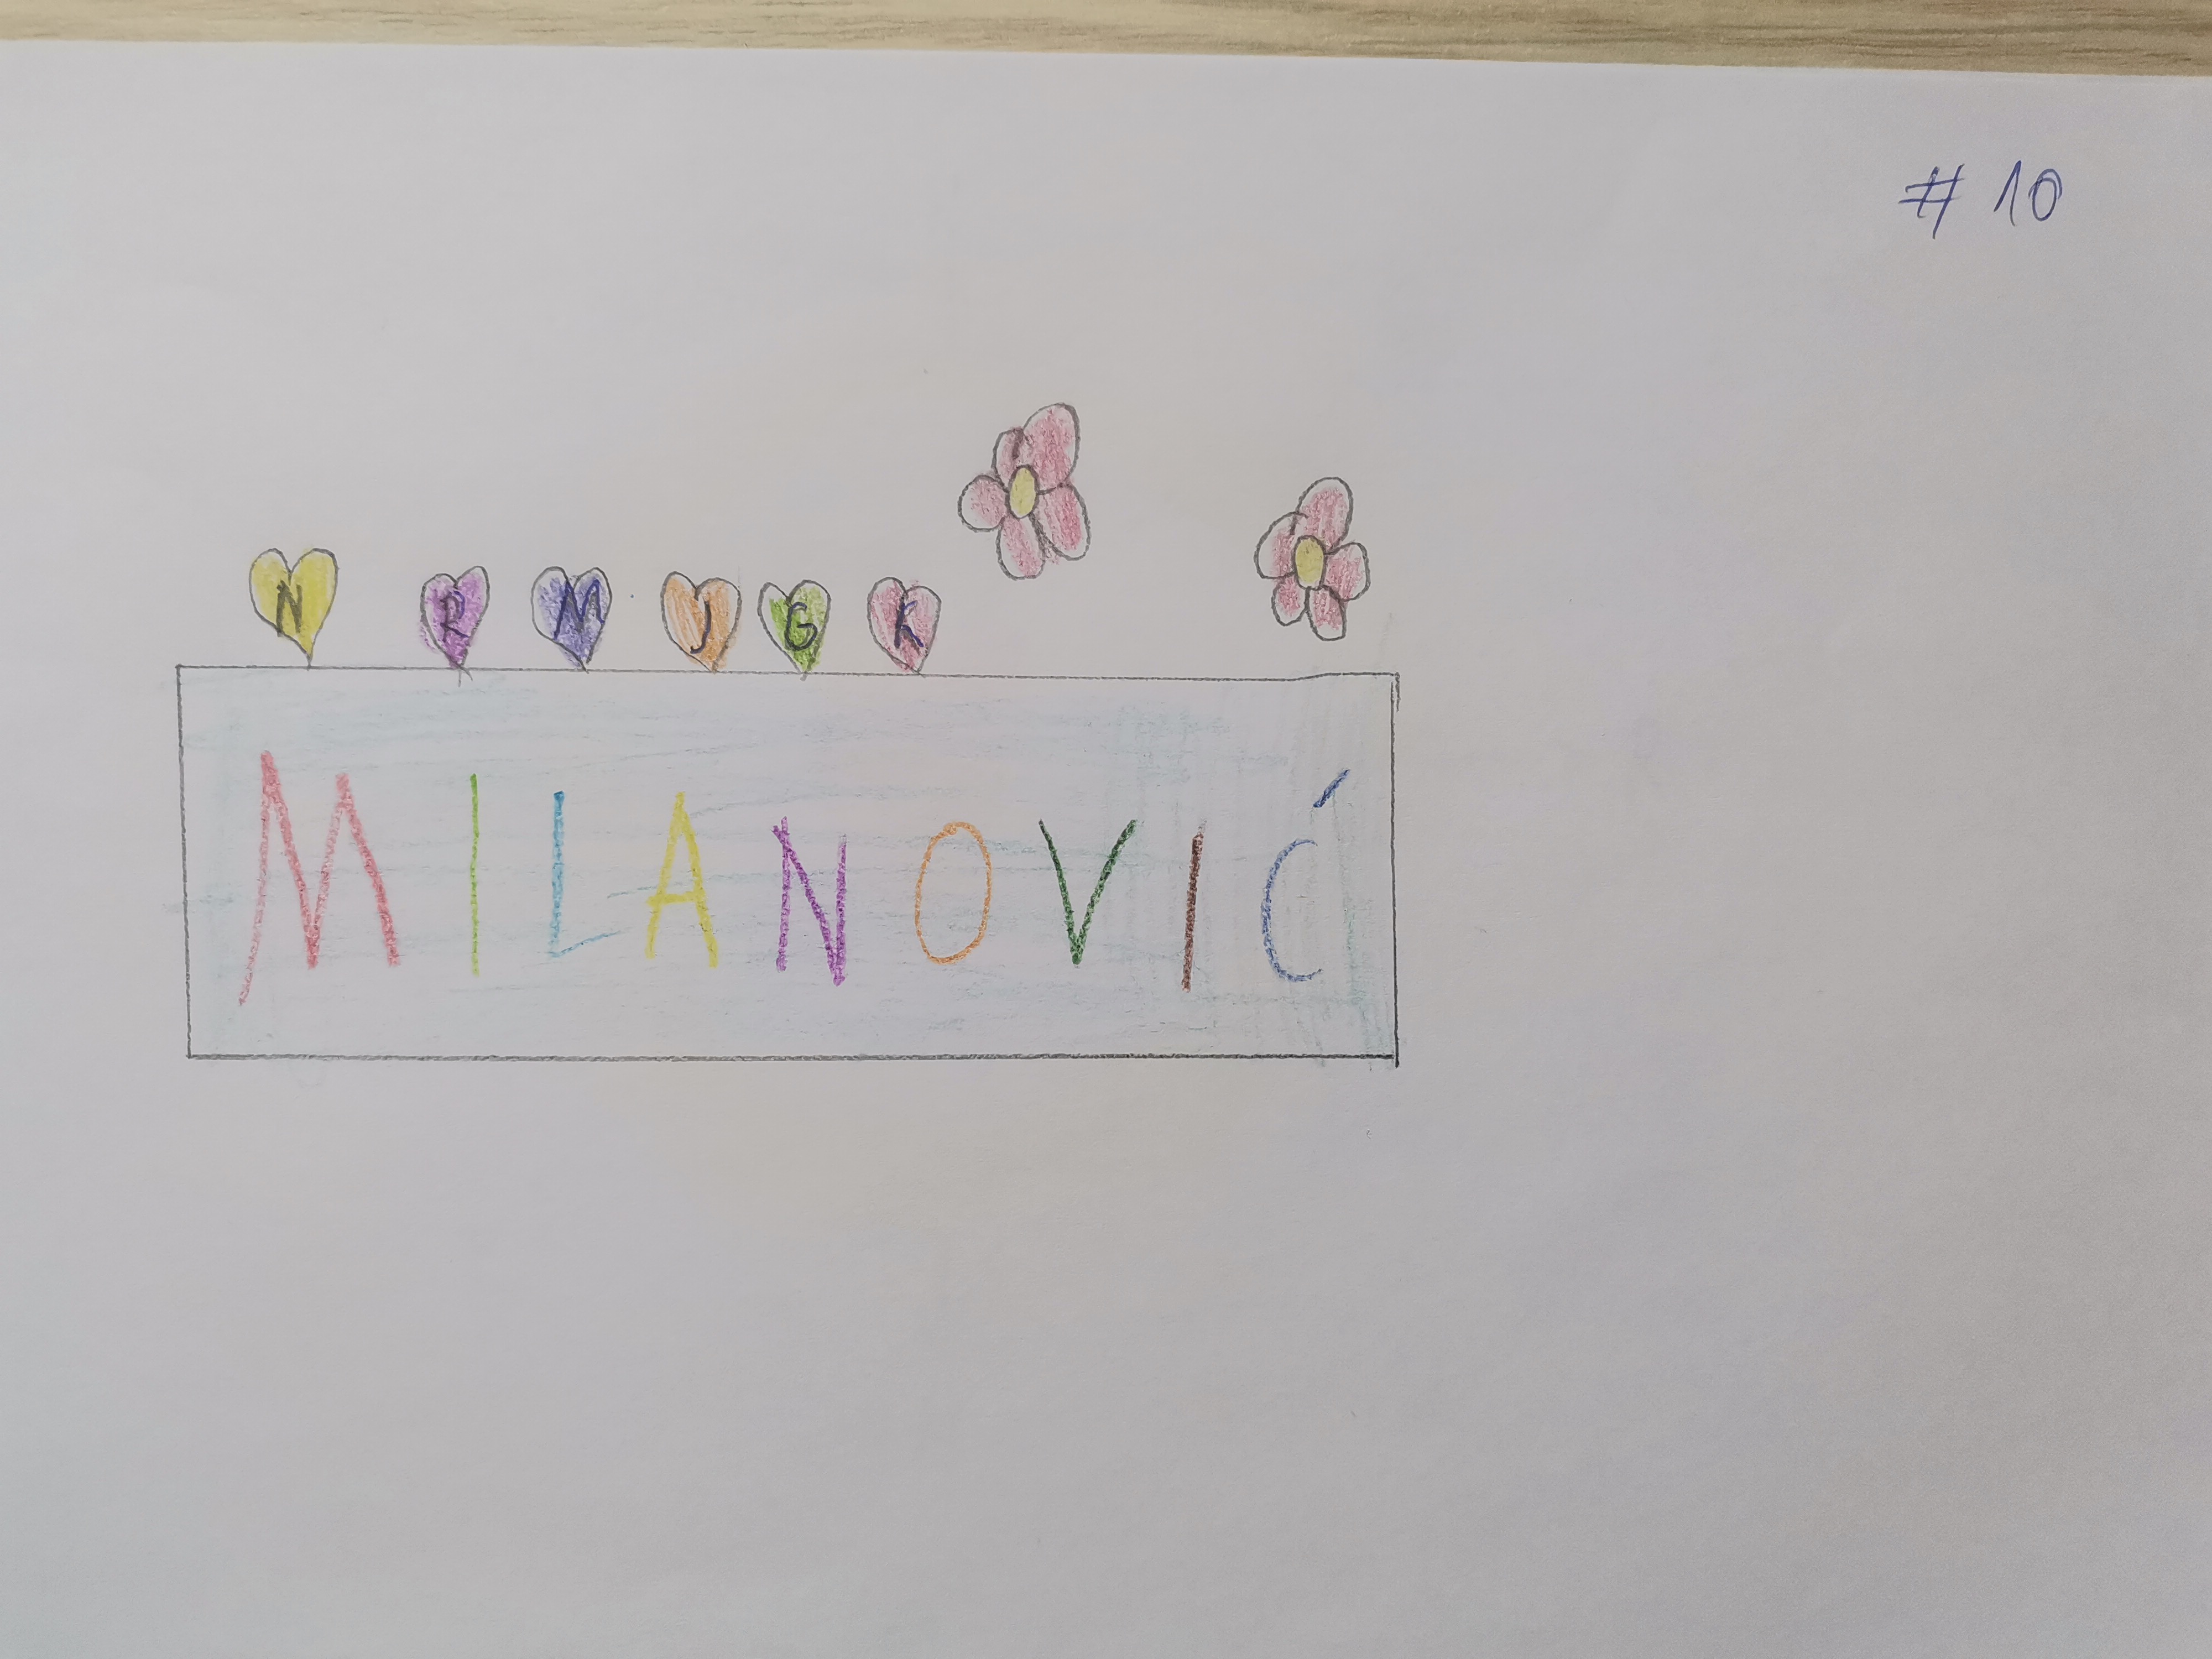 # 10
N R M J G K
MILANOVIĆ